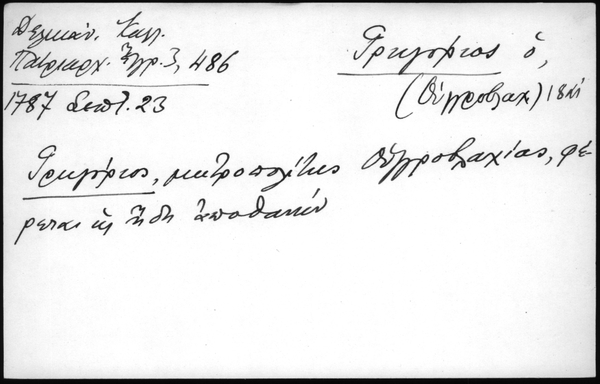 Δελικάν. Καλλ.
Πατριαρχ. Ἔγγρ. 3, 486
1787 Σεπτ. 23
Γρηγόριος ὁ,
(Οὑγγροβλαχ) 18 αἰ
Γρηγόριος, μητροπολίτης Οὑγγροβλαχίας, φέ-
ρεται ὡς ἤδη ἀποθανών